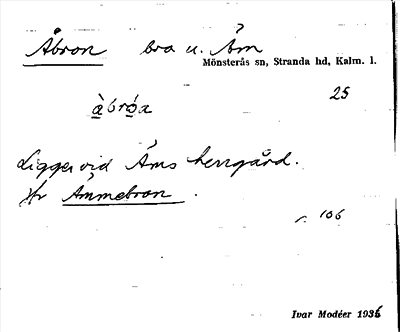 Åbron bro u. Åm
Mönsterås sn, Stranda hd, Kalm. l.
25
Ligger vid Åms herrgård.
Jfr Åmmebron.
106
Ivar Modéer 1936